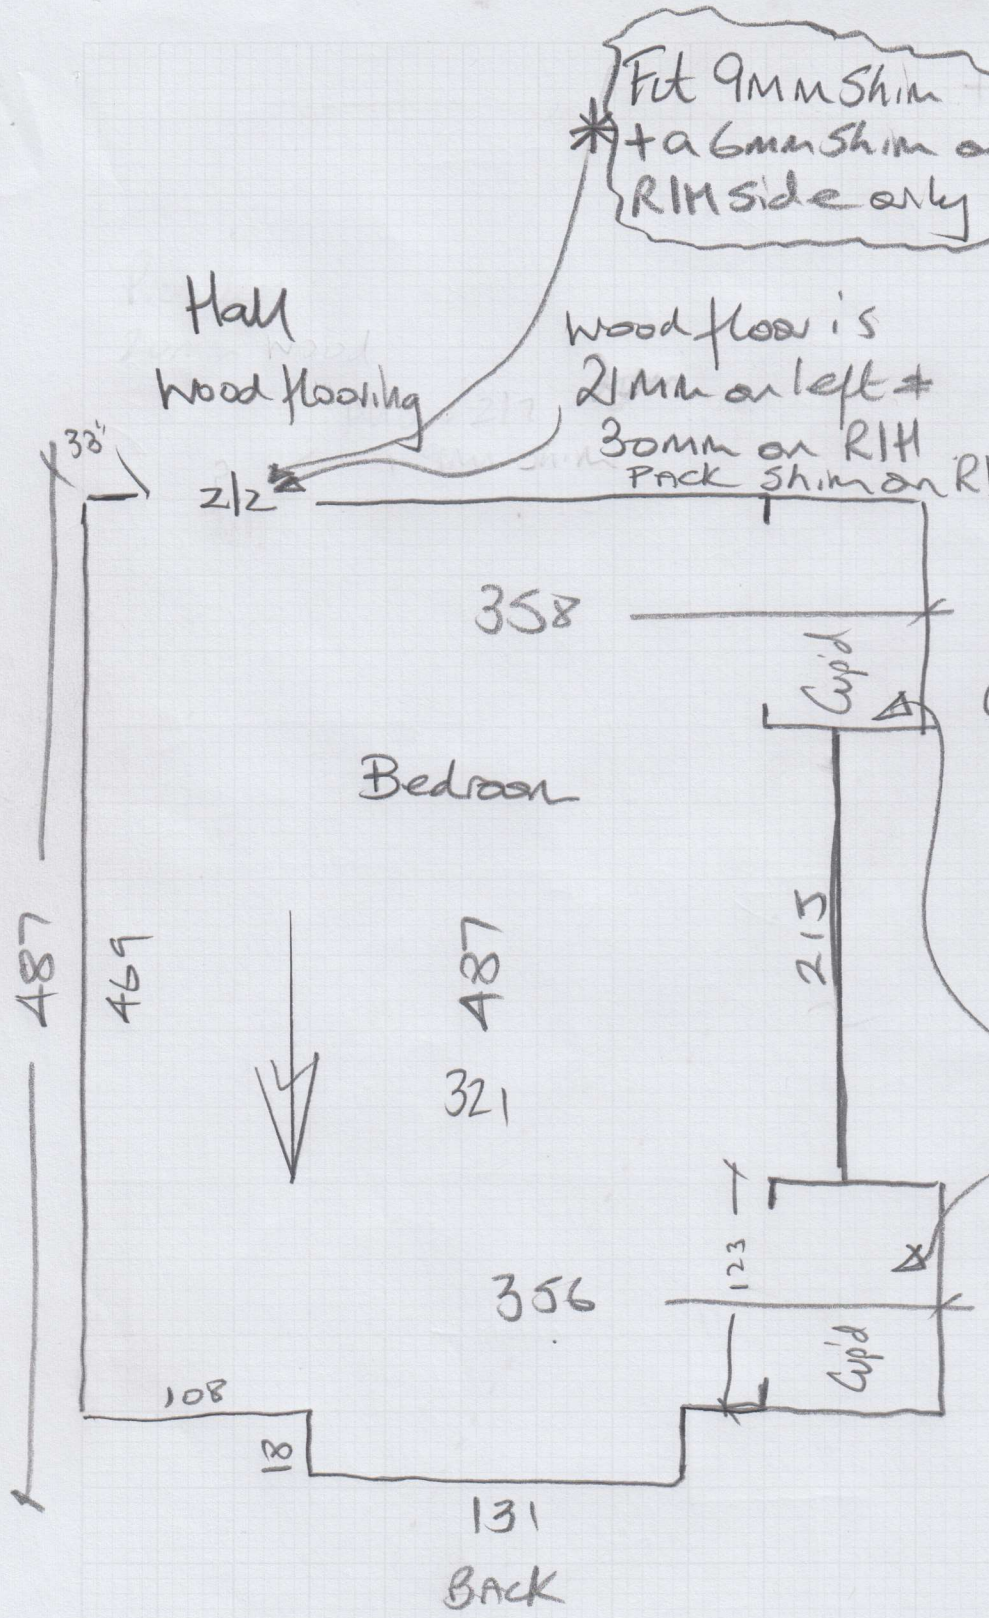 Fit 9mm Shim
* + a 6mm Shim on
R/H Side only
Hall
Wood flooring
wood floor is
21mm on left +
30mm on R/H
PACK Shim on R
33"
2/2
358
Cup'd
Bedroom
487
469
487
215
321
356
123
Cup'd
108
18
131
BACK